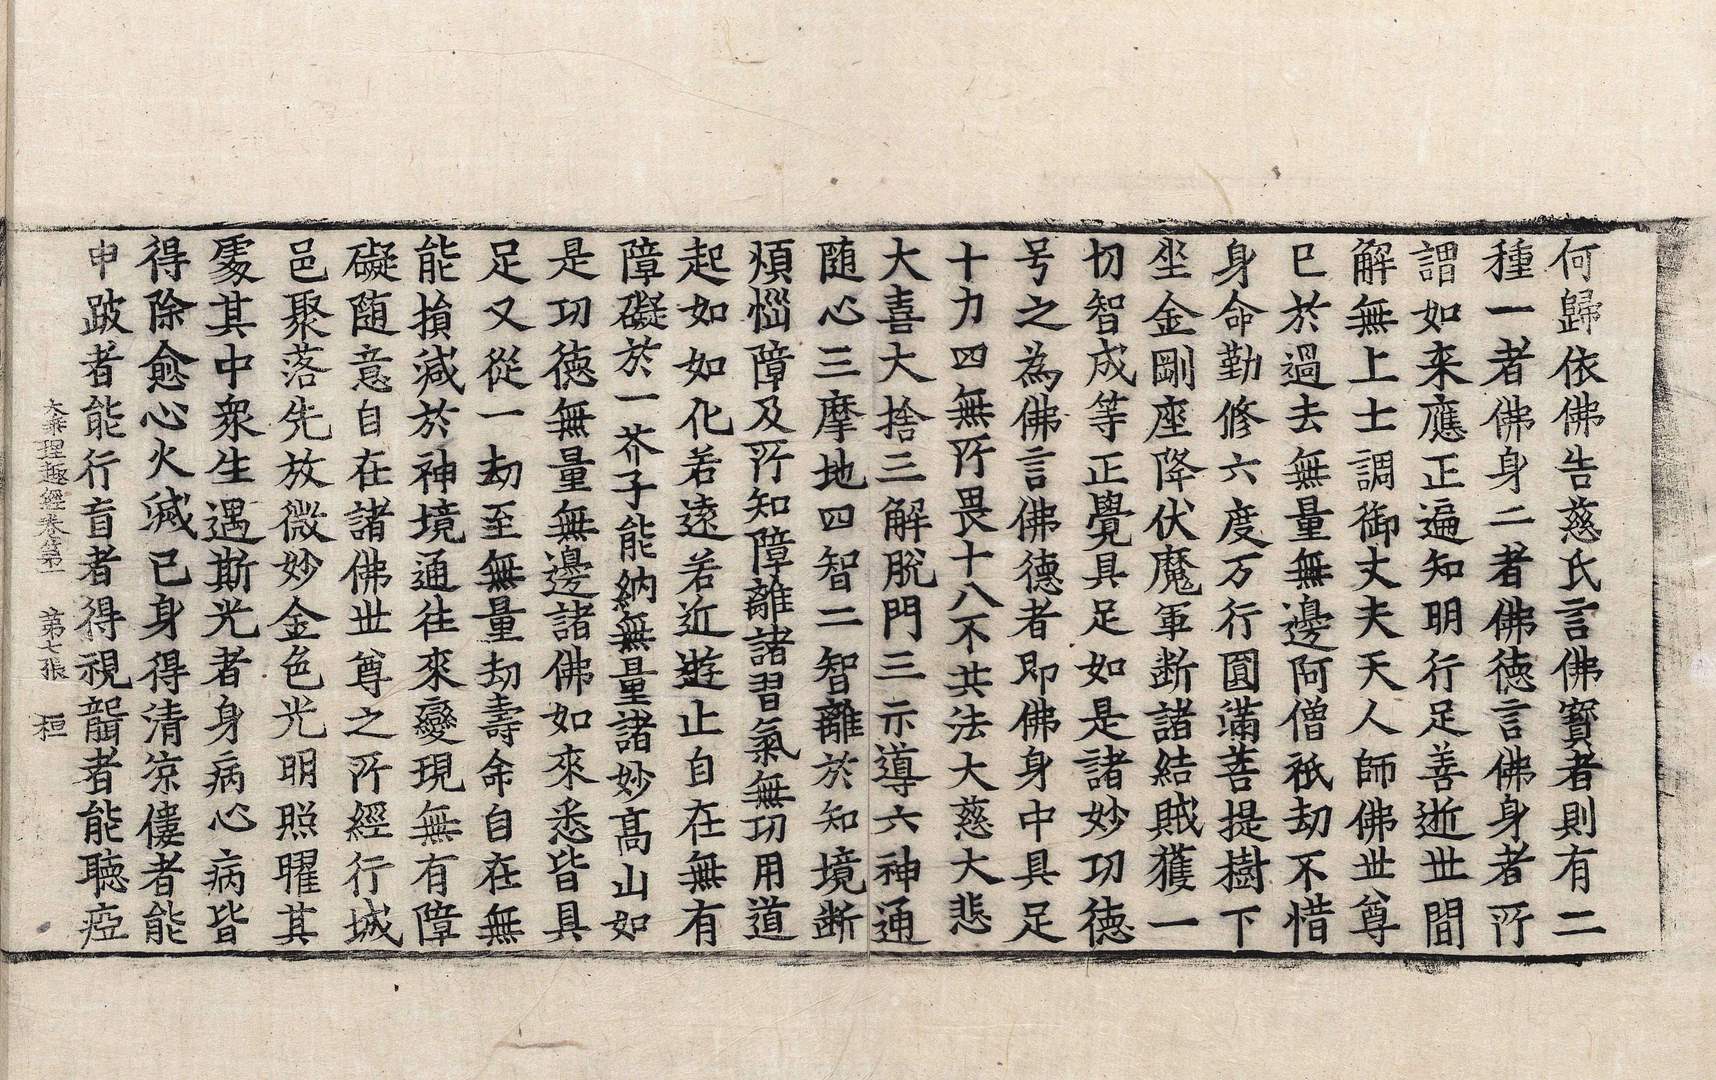 何歸依佛告慈氏言佛寳者則有二
種一者佛身二者佛德言佛身者所
謂如来應正遍知明行足善逝丗間
解無上士調御丈夫天人師佛丗尊
已於過去無量無邊阿僧祇劫不惜
身命勤修六度万行圓滿菩提樹下
坐金剛座降伏魔軍断諸結賊獲一
切智成等正覺具足如是諸妙功德
号之為佛言佛德者即佛身中具足
十力四無所畏十八不共法大慈大悲
大喜大捨三解脱門三示導六神通
随心三摩地四智二智離於知境断
煩惱障及所知障離諸習氣無功用道
起如如化若遠若近遊止自在無有
障礙於一芥子能納無量諸妙高山如
是功德無量無邊諸佛如來悉皆具
足又從一劫至無量劫壽命自在無
能損减於神境通往來變現無有障
礙随意自在諸佛丗尊之所經行城
邑聚落先放微妙金色光明照曜其
處其中衆生遇斯光者身病心病皆
得除愈心火滅已身得清凉僂者能
申跛者能行盲者得視聾者能聴瘂
大乘理趣經卷第一 第七張 桓